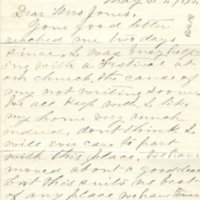 May
Dear Mrs Jones,
Your good letter
reached me two days
since. I was busy helping
ing with a Festival at
our church, the cause of
my not writing sooner.
We all keep well. I like
my home very much
indeed, don't think I
will ever care to part
with this place. We have
moved about a good deal
but this suits me best
of any place we have ever